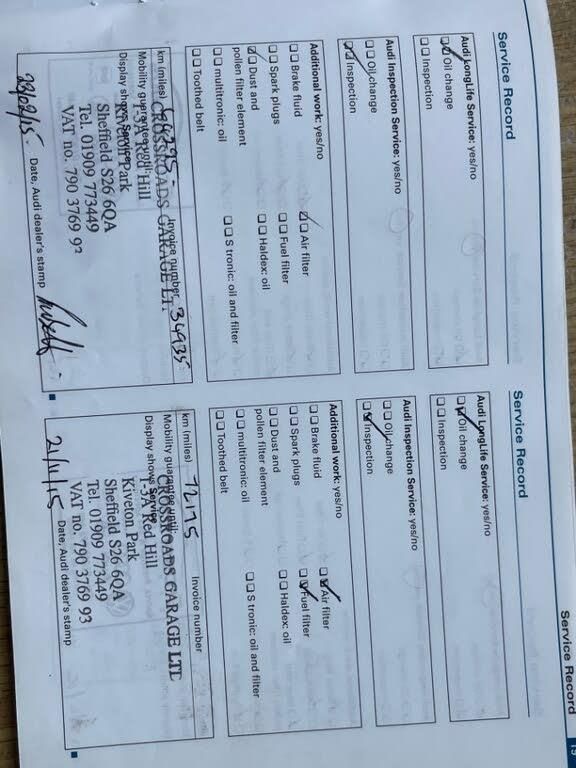 Service Record
Service Record
Audi LongLife Service: yes/no
Oil change
Inspection
Audi Inspection Service: yes/no
Oil change
Inspection
Additional work: yes/no
Brake fluid
Spark plugs
Dust and
pollen filter element
multitronic: oil
Toothed belt
Air filter
Fuel filter
Haldex: oil
S tronic: oil and filter
km (miles) 68295 - Invoice number 34935
Mobility guarantee until:
Display shows Service
CROSSROADS GARAGE LT
1-3A Red Hill
Kiveton Park
Sheffield S26 6QA
Tel. 01909 773449
VAT no. 790 3769 93
Date, Audi dealer's stamp
Service Record
Audi LongLife Service: yes/no
Oil change
Inspection
Audi Inspection Service: yes/no
Oil change
Inspection
Additional work: yes/no
Brake fluid
Spark plugs
Dust and
pollen filter element
multitronic: oil
Toothed belt
Air filter
Fuel filter
Haldex: oil
S tronic: oil and filter
km (miles) 72175 Invoice number
Mobility guarantee until:
Display shows Service
CROSSROADS GARAGE LTD
1-3A Red Hill
Kiveton Park
Sheffield S26 6QA
Tel. 01909 773449
VAT no. 790 3769 93
21/11/15 Date, Audi dealer's stamp